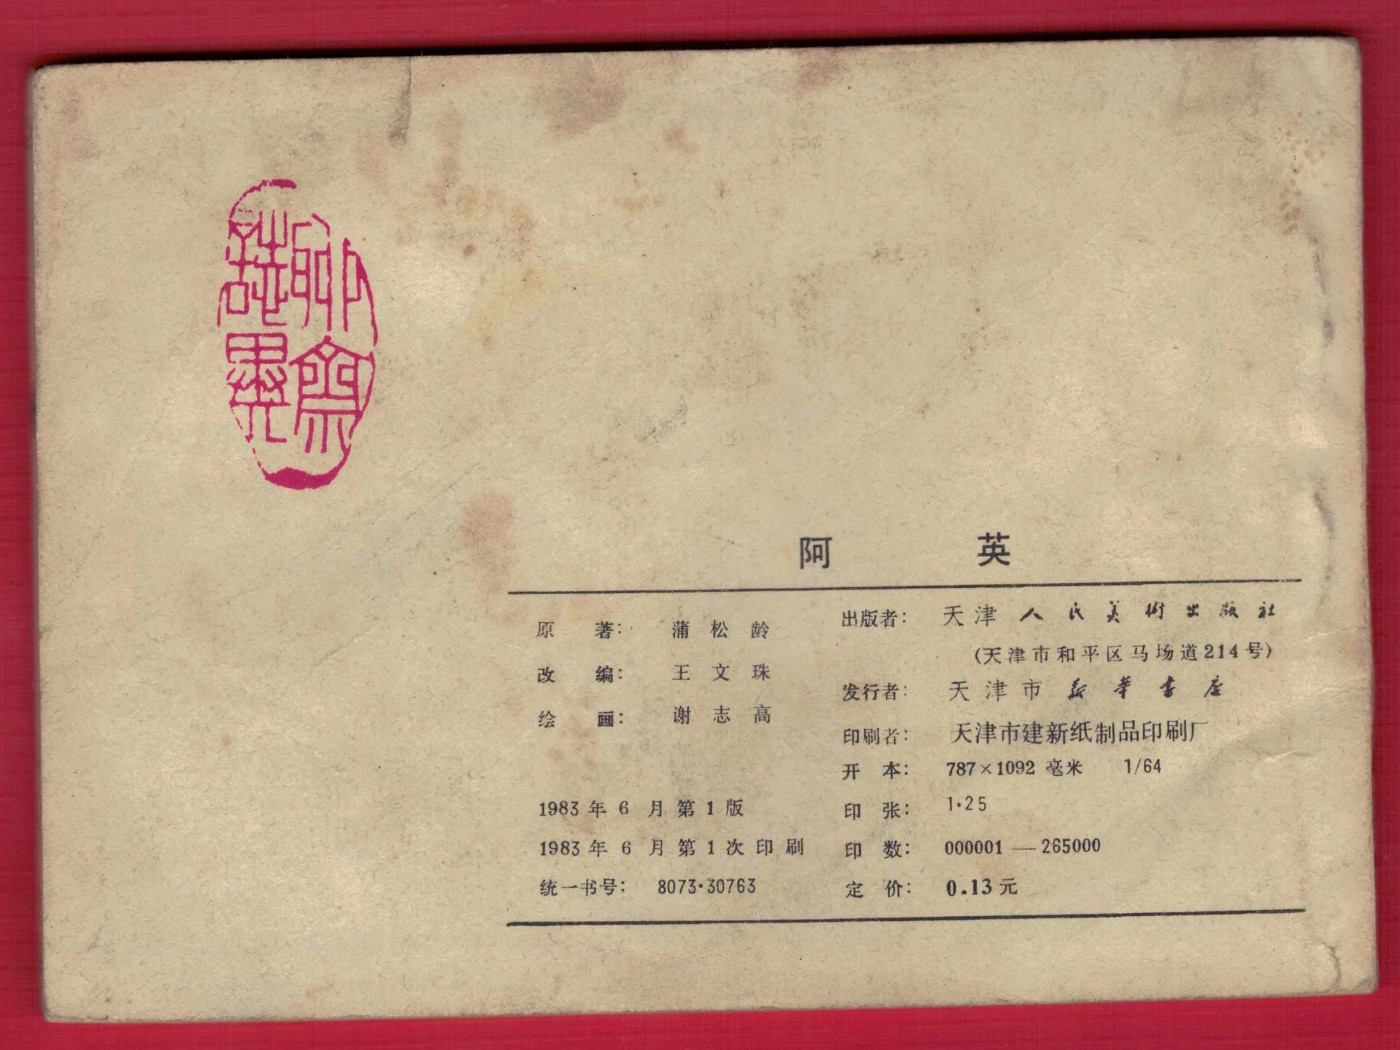 聊齋
誌異
阿英
原著：蒲松龄
改编：王文珠
绘画：谢志高
1983年6月第1版
1983年6月第1次印刷
统一书号：8073·30763
出版者：天津人民美術出版社
(天津市和平区马场道214号)
发行者：天津市新华书店
印刷者：天津市建新纸制品印刷厂
开本：787×1092 毫米 1/64
印张：1·25
印数：000001—265000
定价：0.13元